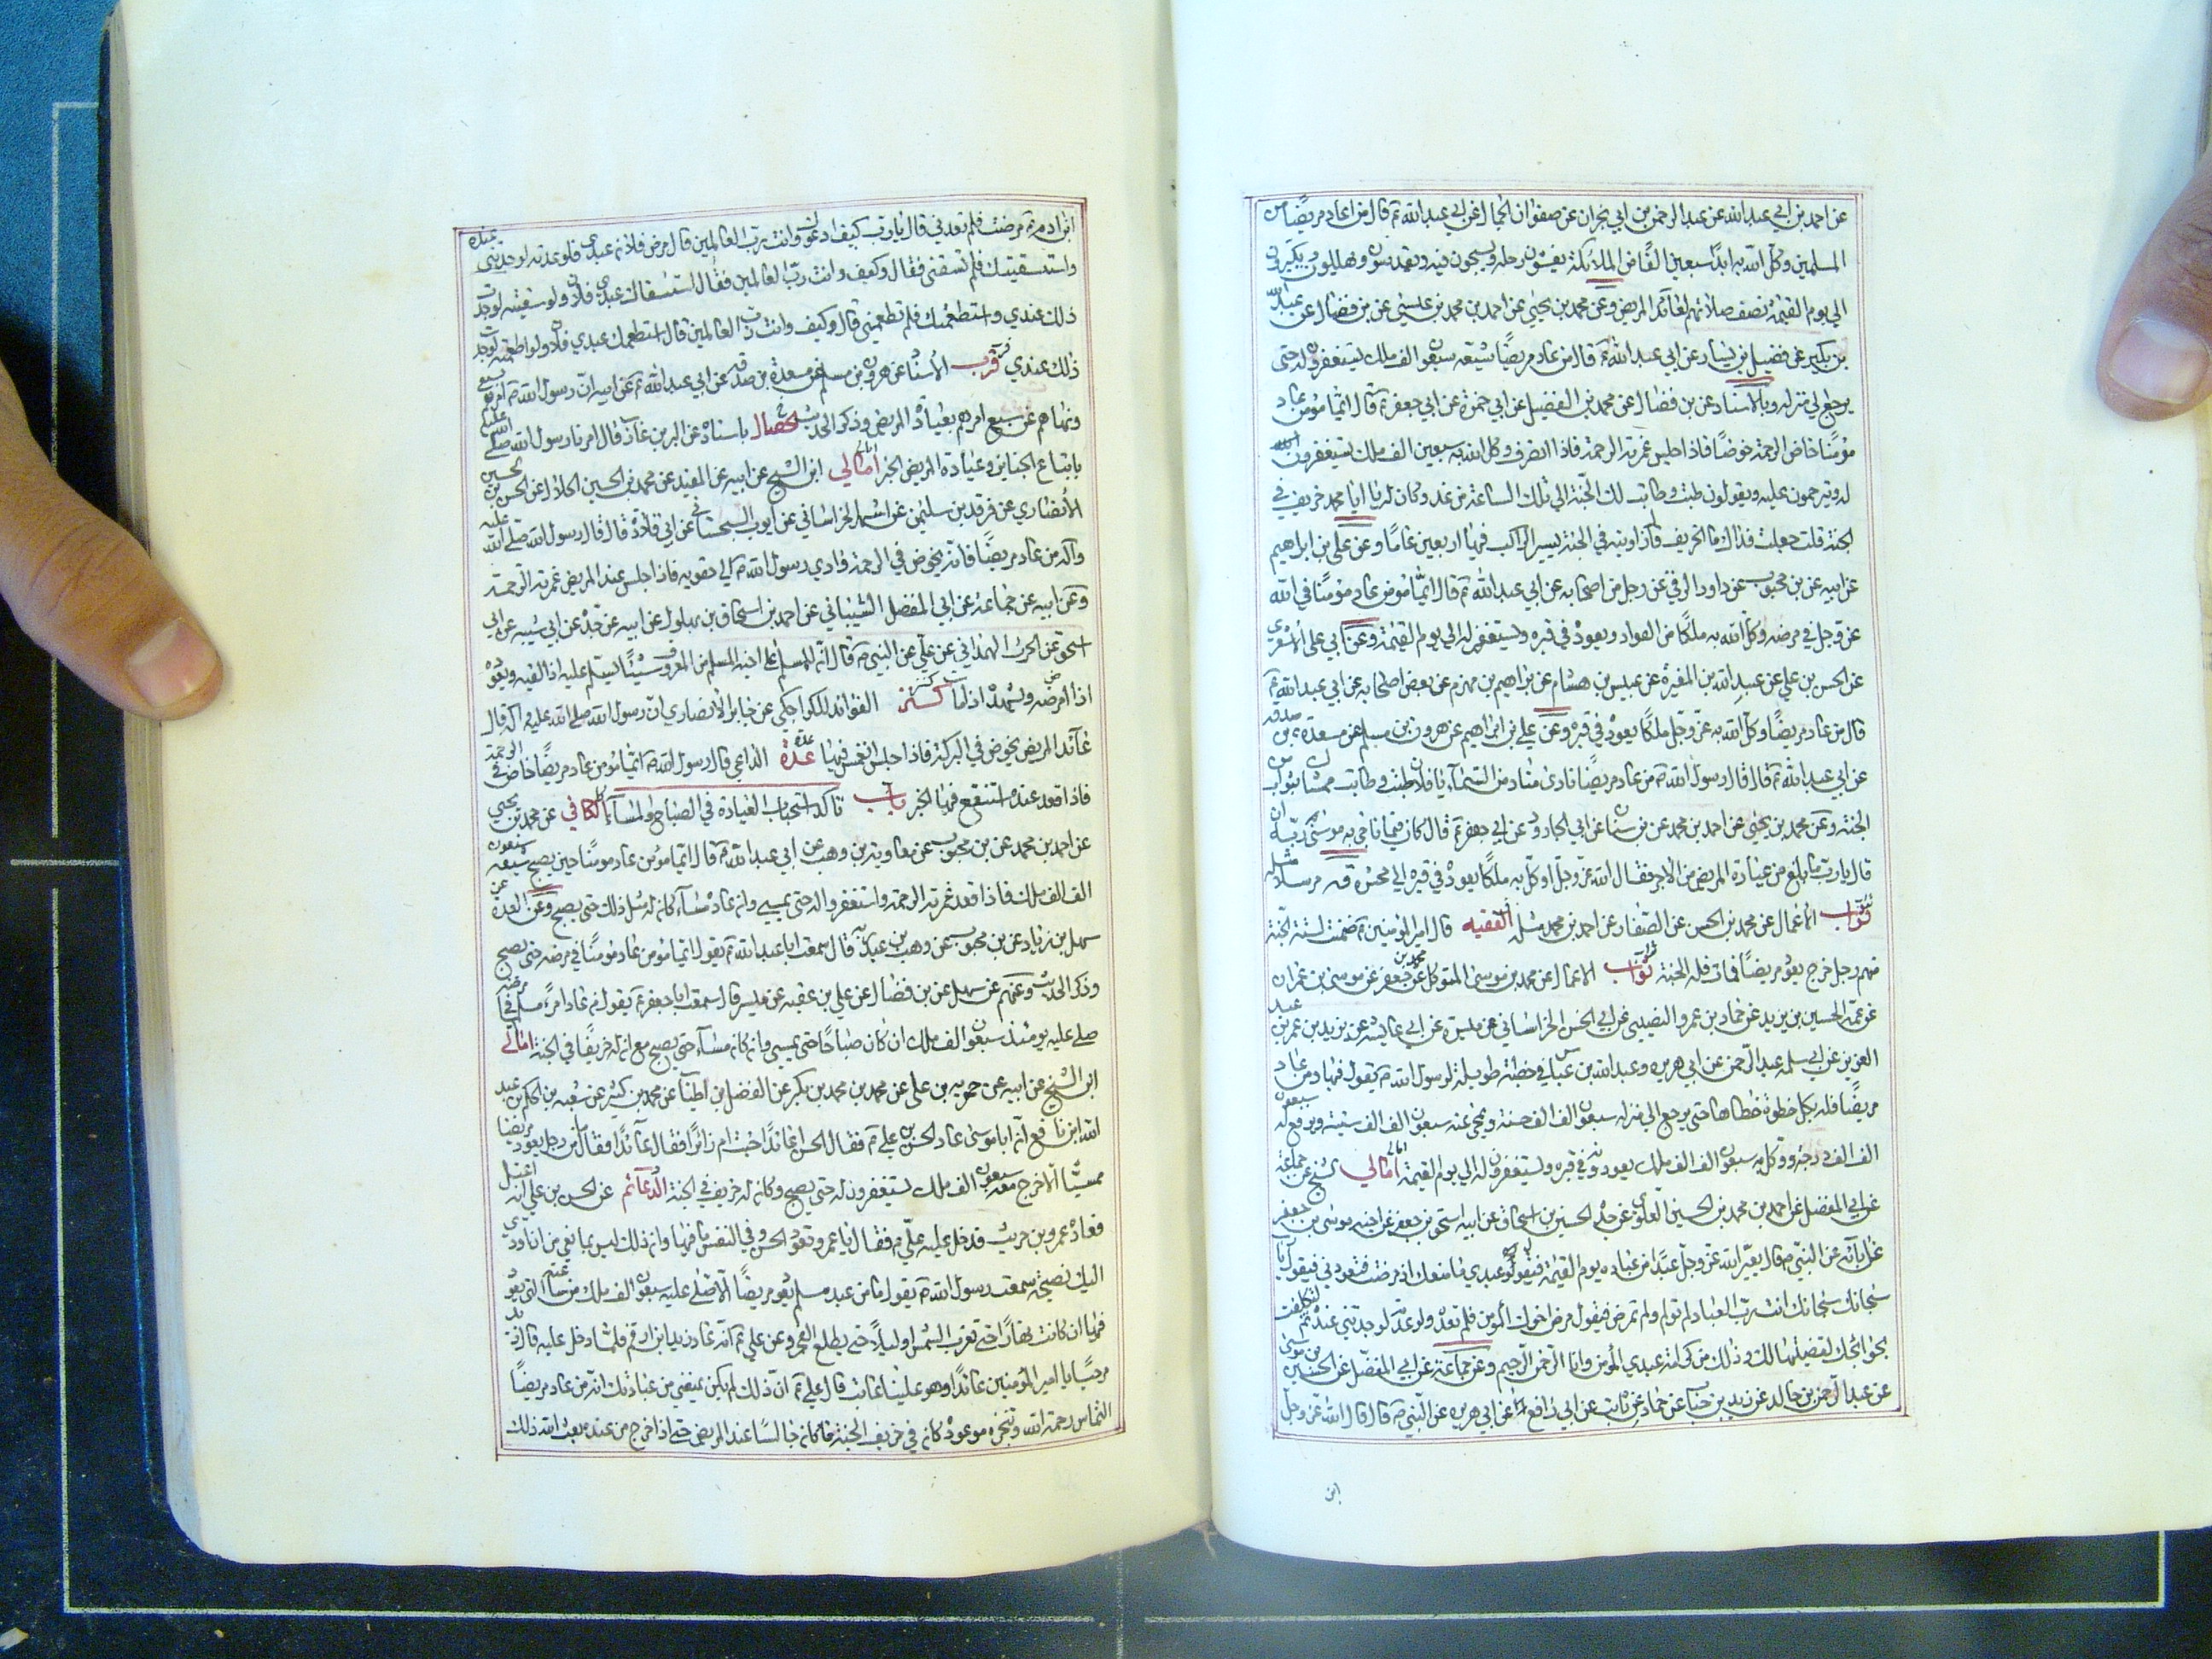 عن احمد بن ابي عبد الله عن عبد الرحمن بن ابي نجران عن صفوان الجمال عن ابي عبد الله ع قال من عاد مريضا من
المسلمين وكل الله به ابدا سبعين الفا من الملائكة يغشون رحله ويسبحون فيه ويقدسون ويهللون ويكبرون
الى يوم القيمة نصف صلاتهم لعائد المريض وعن محمد بن يحيى عن احمد بن محمد بن عيسى عن بن فضال عن عبد الله
بن بكير عن فضيل بن يسار عن ابي عبد الله ع قال من عاد مريضا شيعه سبعون الف ملك يستغفرون له حتى
يرجع الى منزله وبالاسناد عن بن فضال عن محمد بن الفضيل عن ابي حمزة عن ابي جعفر ع قال ايما مؤمن عاد
مؤمنا خاض الرحمة خوضا فاذا جلس غمرته الرحمة فاذا انصرف وكل الله به سبعين الف ملك يستغفرون الله
له ويترحمون عليه ويقولون طبت وطابت لك الجنة الى تلك الساعة من غد وكان له يا ابا محمد خريف في
الجنة قلت جعلت فداك ما الخريف قال زاوية في الجنة يسير الراكب فيها اربعين عاما وعن علي بن ابراهيم
عن ابيه عن بن محبوب عن داود الرقي عن رجل من اصحابه عن ابي عبد الله ع قال ايما مؤمن عاد مؤمنا في الله
عز وجل في مرضه وكل الله به ملكا من العواد يعوده في قبره ويستغفر له الى يوم القيمة وعن ابي علي الاشعري
عن الحسن بن علي عن عبد الله بن المغيرة عن عبيس بن هشام عن ابراهيم بن مهزم عن بعض اصحابه عن ابي عبد الله ع
قال من عاد مريضا وكل الله به عز وجل ملكا يعوده في قبره وعن علي بن ابراهيم عن هرون بن مسلم عن مسعدة بن صدقه
عن ابي عبد الله ع قال قال رسول الله ص من عاد مريضا نادى مناد من السماء يا فلان طبت وطاب ممشاك بثواب من
الجنة وعن محمد بن يحيى عن احمد بن محمد عن بن سنان عن ابي الجارود عن ابي جعفر ع قال كان فيما ناجى به موسى ربه ان
قال يا رب ما بلغ من عيادة المريض من الاجر فقال الله عز وجل اوكل به ملكا يعوده في قبره الى محشره قيه مرسلا مثله
ثواب الاعمال عن محمد بن الحسن عن الصفار عن احمد بن محمد مثله الفقيه قال امير المؤمنين ع ضمنت لستة الجنة
منهم رجل خرج يعود مريضا فمات فله الجنة ثواب الاعمال عن محمد بن موسى المتوكل عن محمد بن جعفر عن موسى بن عمران
عن عمه الحسين بن يزيد عن حماد بن عمرو النصيبي عن ابي الحسن الخراساني عن ميسرة عن ابي عايشة عن يزيد بن عمر بن عبد
العزيز عن ابي سلمه عبد الرحمن عن ابي هريره وعبد الله بن عباس في خطبة طويلة لرسول الله ص يقول فيها ومن عاد
مريضا فله بكل خطوة خطاها حتى يرجع الى منزله سبعون الف الف حسنة ويمحى عنه سبعون الف الف سيئة ويرفع له سبعون
الف الف درجة ووكل به سبعون الف الف ملك يعودونه في قبره ويستغفرون له الى يوم القيمة امالي الشيخ عن جماعة
عن ابي المفضل عن احمد بن محمد بن الحسين العلوي عن جده الحسين بن اسحاق عن ابيه اسحق بن جعفر عن اخيه موسى بن جعفر
عن ابائه عن النبي ص قال يعير الله عز وجل عبدا من عباده يوم القيمة فيقول له عبدي ما منعك اذ مرضت فتعودني فيقول
سبحانك سبحانك انت رب العباد لا تولم ولا تمرض فيقول مرض اخوك المؤمن فلم تعده ولو عدته لوجدتني عنده ثم لتكلفت
بحوائجك لقضيتها لك وذلك من كرامة عبدي المؤمن وانا الرحمن الرحيم وعن جماعة عن ابي المفضل عن الحسين بن موسى
عن عبد الرحمن بن خالد عن زيد بن حباب عن حماد عن ثابت عن ابي رافع عن ابي هريره عن النبي ص قال قال الله عز وجل
ابن
ابن ادم مرضت فلم تعدني قال يا رب كيف ادعوك وانت رب العالمين قال مرض فلان عبدي فلو عدته لوجدتني عنده
واستسقيتك فلم تسقني فقال وكيف وانت رب العالمين فقال استسقاك عبدي فلان ولو سقيته لوجدت
ذلك عندي واستطعمتك فلم تطعمني قال وكيف وانت رب العالمين قال استطعمك عبدي فلان ولو اطعمته لوجدت
ذلك عندي قرب الاسناد عن هرون بن مسلم عن مسعدة بن صدقه عن ابي عبد الله ع عن ابيه ان رسول الله ص امرهم بسبع
ونهاهم عن سبع امرهم بعيادة المريض وذكر الحديث الخصال باسناده عن البر بن عازب قال امرنا رسول الله صلى الله عليه
باتباع الجنايز وعيادة المريض الخبر امالي ابن الشيخ عن ابيه عن المفيد عن محمد بن الحسين الحلال عن الحسن بن الحسين
الانصاري عن فرقد بن سليمن عن اسمعيل الخراساني عن ايوب السجستاني عن ابي قلادة قال قال رسول الله صلى الله عليه
واله من عاد مريضا فانه يخوض في الرحمة واومى رسول الله ص الى حقويه فاذا جلس عند المريض غمرته الرحمة
وعن ابيه عن جماعة عن ابي المفضل الشيباني عن احمد بن اسحاق بن بهلول عن ابيه عن جده عن ابي شيبه عن ابي
اسحق عن الحرث الهمداني عن علي عن النبي ص قال انه للمسلم على اخيه المسلم من المعروف ستا يسلم عليه اذا لقيه ويعوده
اذا مرض ويشهده اذا مات كنز الفوائد للكراجكي عن جابر الانصاري ان رسول الله صلى الله عليه واله قال
عائد المريض يخوض في البركة فاذا جلس انغمس فيها عدة الداعي قال رسول الله ص ايما مؤمن عاد مريضا خاض في الرحمة
فاذا قعد عنده استنقع فيها الخبر باب تاكد استحباب العيادة في الصباح والمساء الكافي عن محمد بن يحيى
عن احمد بن محمد عن بن محبوب عن معاوية بن وهب عن ابي عبد الله ع قال ايما مؤمن عاد مؤمنا حين يصبح شيعه سبعون
الف الف ملك فاذا قعد غمرته الرحمة واستغفروا له حتى يمسي وان عاده مساء كان له مثل ذلك حتى يصبح وعن العدة عن
سهل بن زياد عن بن محبوب عن وهب بن عبد ربه قال سمعت ابا عبد الله ع يقول ايما مؤمن عاد مؤمنا في مرضه حتى يصبح
وذكر الحديث وعنهم عن سهل عن بن فضال عن علي بن عقبه عن ميسر قال سمعت ابا جعفر ع يقول من عاد امرءا مسلما في مرضه
صلى عليه يومئذ سبعون الف ملك ان كان صباحا حتى يمسي وان كان مساء حتى يصبح مع ان له خريفا في الجنة امالي
ابن الشيخ عن ابيه عن حمويه بن علي عن محمد بن محمد بن بكر عن الفضل بن عن محمد بن كثير عن شعبه بن الحكم بن عبد
الله ابن نافع ان ابا موسى عاد الحسن بن علي ع فقال الحسن اعائدا جئت ام زائرا فقال عائدا فقال ما من رجل يعود مريضا
ممسيا الا خرج معه سبعون الف ملك يستغفرون له حتى يصبح وكان له خريف في الجنة الدعائم عن الحسن بن علي انه اعتل
فعاده عمرو بن حريث فدخل عليه علي ع فقال يا عمرو تعود الحسن وفي النفس ما فيها وان ذلك ليس بمانعي من ان اؤدي
اليك نصيحة سمعت رسول الله ص يقول ما من عبد مسلم يعود مريضا الا صلى عليه سبعون الف ملك من ساعته التي يعود
فيها ان كانت نهارا حتى تغرب الشمس او ليلا حتى يطلع الفجر وعن علي ع انه عاد زيد ابن ارقم فلما دخل عليه قال زيد
مرحبا يا امير المؤمنين عائدا وهو علينا عاتب قال علي ع ان ذلك لم يكن يمنعني من عيادتك انه من عاد مريضا
التماس رحمة الله وتنجز موعوده كان في خريف الجنة ما كان جالسا عند المريض حتى اذا خرج من عنده بعث الله ذلك